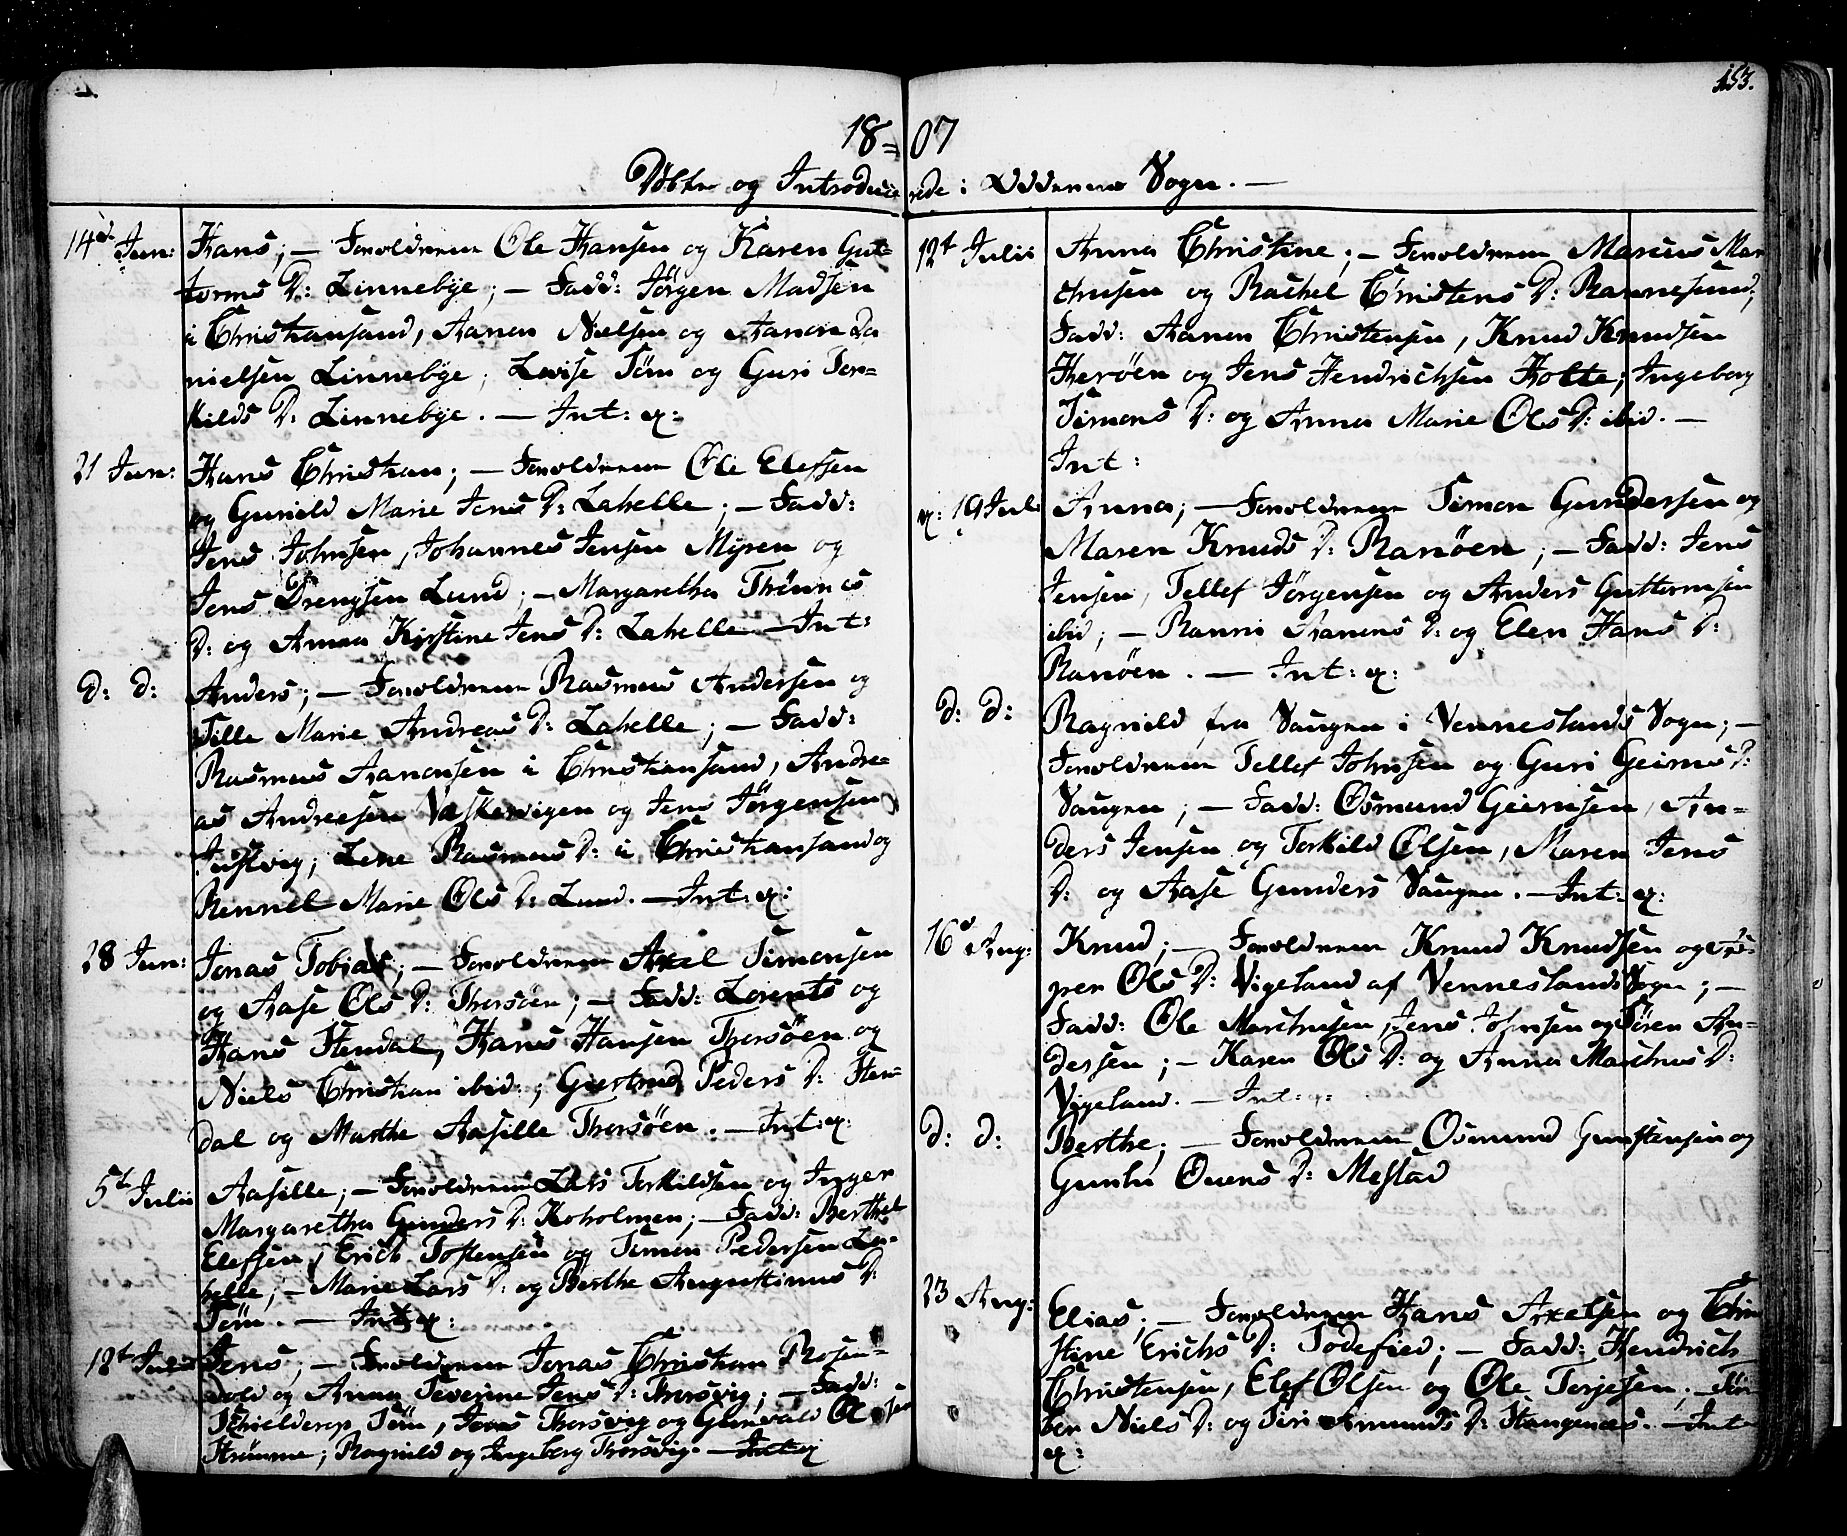 153.
18=07
Døbte og Introducerede i Oddernes Sogn. —
14de Jun: Hans; — Forældrene Ole Hansen og Karen Gut-
torms D: Linnebye; — Fadd: Jørgen Madsen
i Christiansand, Aanon Nielsen og Aanon Da
nielsen Linnebye; Lovise Tøm og Guri Ter-
kilds D: Linnebye. — Int: ex:
21 Jun: Hans Christian; — Forældrene Ole Elefsen
og Gunild Marie Jens D: Lahelle; — Fadd:
Jens Johnsen, Johannes Jensen Myren og
Jens Drengsen Lund; — Margaretha Thønnes
D: og Anna Kirstine Jens D: Lahelle — Int:
D: D: Anders; — Forældrene Rasmus Andersen og
Sille Marie Andreas D: Lahelle; — Fadd:
Rasmus Aanonsen i Christiansand, Andre-
as Andresen Vaskevigen og Jens Jørgensen
Justvig; Lene Rasmus D: i Christiansand og
Rennel Marie Ols D: Lund. — Int: ex:
28 Jun: Jonas Tobias; — Forældrene Axel Simonsen
og Aase Ols D: Thorsøen; — Fadd: Lorents og
Hans Stendal, Hans Hansen Thorsøen og
Niels Christian ibid:; Giertrud Peders D: Sten-
dal og Marthe Aasille Thorsøen. — Int: ex:
5t Julii Aasille; — Forældrene Lars Torkildsen og Inger
Margaretha Gunders D: Koholmen; — Fadd: Berthel
Elefsen, Erich Tostensen og Simon Pedersen La-
helle; — Marie Lars D: og Berthe Augustinus D:
Tøm. — Int: ex:
12t Julii Jens; — Forældrene Jonas Christian Rosen-
vold og Anna Severine Jens D: Thorsvig; — Fadd:
Schielderop Tøm, Jens Thorsvig og Gunvald Olsen
Strømme; Ragnild og Ingeborg Thorsvig. — Int: ex
12t Julii Anna Christine; — Forældrene Marcus Mar
thusen og Rachel Christens D: Rannesund;
Fadd: Aanon Christensen, Knud Knudsen
Herøen og Jens Hendrichsen Kolte; Ingeborg
Simons D: og Anna Marie Ols D: ibid. —
Int:
ex: 19 Jul: Anna; — Forældrene Simon Gundersen og
Maren Knuds D: Ranøen; — Fadd: Jens
Jensen, Tellef Jørgensen og Anders Guttormsen
ibid; — Ranni Aanons D: og Elen Hans D:
Ranøen. — Int: ex:
D: D: Ragnild fra Saugen i Venneslands Sogn; —
Forældrene Tellef Johnsen og Guri Geirus D:
Saugen; — Fadd: Osmund Geirusen, An-
ders Jensen og Torkild Olsen, Maren Jens
D: og Aase Gunders Saugen. — Int: ex:
16d Aug: Knud; — Forældrene Knud Knudsen og
per Ols D: Vigeland af Venneslands Sogn; —
Fadd: Ole Marthusen, Jens Johnsen og Søren An-
dersen; — Karen Ols D: og Anna Marthus D:
Vigeland. — Int: ex:
D: D: Berthe; — Forældrene Osmund Gunstensen og
Gunhi Ouens D: Mestad
23 Aug: Elias; — Forældrene Hans Axelsen og Chri
stine Erichs D: Todefied; — Fadd: Hendrich
Christensen, Elef Olsen og Ole Terjesen; — Tor
bor Niels D: og Siri Amunds D: Stangenæs. — Int
ex: